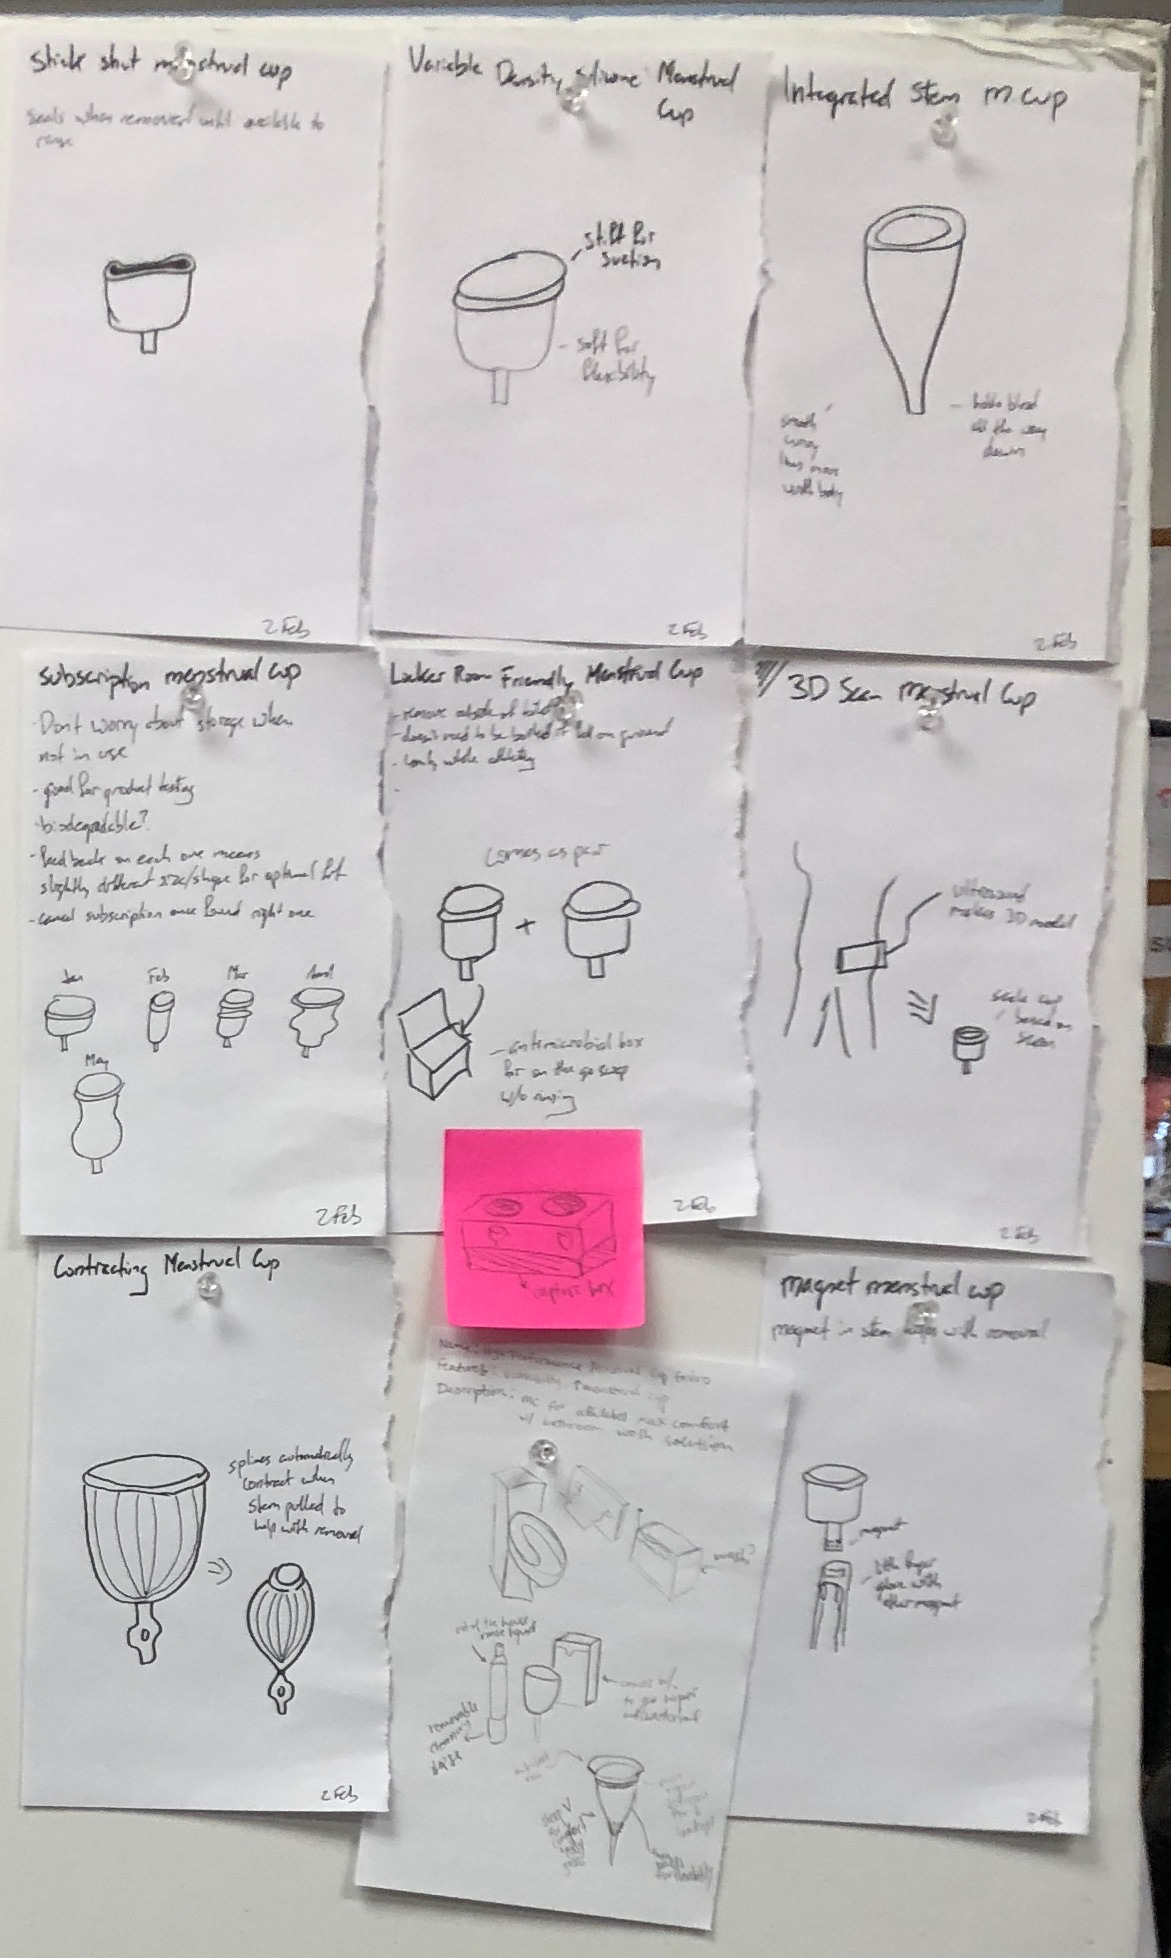 Stick shut menstrual cup
seals when removed until available to
Variable Density Silicone Menstrual
Cup
stiff for
suction
soft for
flexibility
2 Feb
2 Feb
Integrated Stem M. Cup
holds blood
all the way
down
2 Feb
subscription menstrual cup
- Don't worry about storage when
not in use
- good for product testing
- biodegradable?
- feedback on each one means
slightly different size/shape for optimal fit
- cancel subscription once found right one
Jan
Feb
Mar
April
May
2 Feb
Locker Room Friendly Menstrual Cup
- remove outside of toilet
- doesn't need to be boiled if fell on ground
- comfy while athleting
-
comes as pair
+
- antimicrobial box
for on the go swap
w/o rinsing
2 Feb
capture box
3D Scan Menstrual Cup
ultrasound
makes 3D model
scale cup
based on
scan
2 Feb
Contracting Menstrual Cup
splines automatically
contract when
stem pulled to
help with removal
2 Feb
Name: High Performance Menstrual Cup
Features: menstrual cup
Description: MC for athletes max comfort
w/ bathroom wash solution
out of the house
rinse liquid
removable
cleaning
comes w/
to go
magnet menstrual cup
magnet in stem helps with removal
magnet
little finger
glove with
other magnet
2 Feb